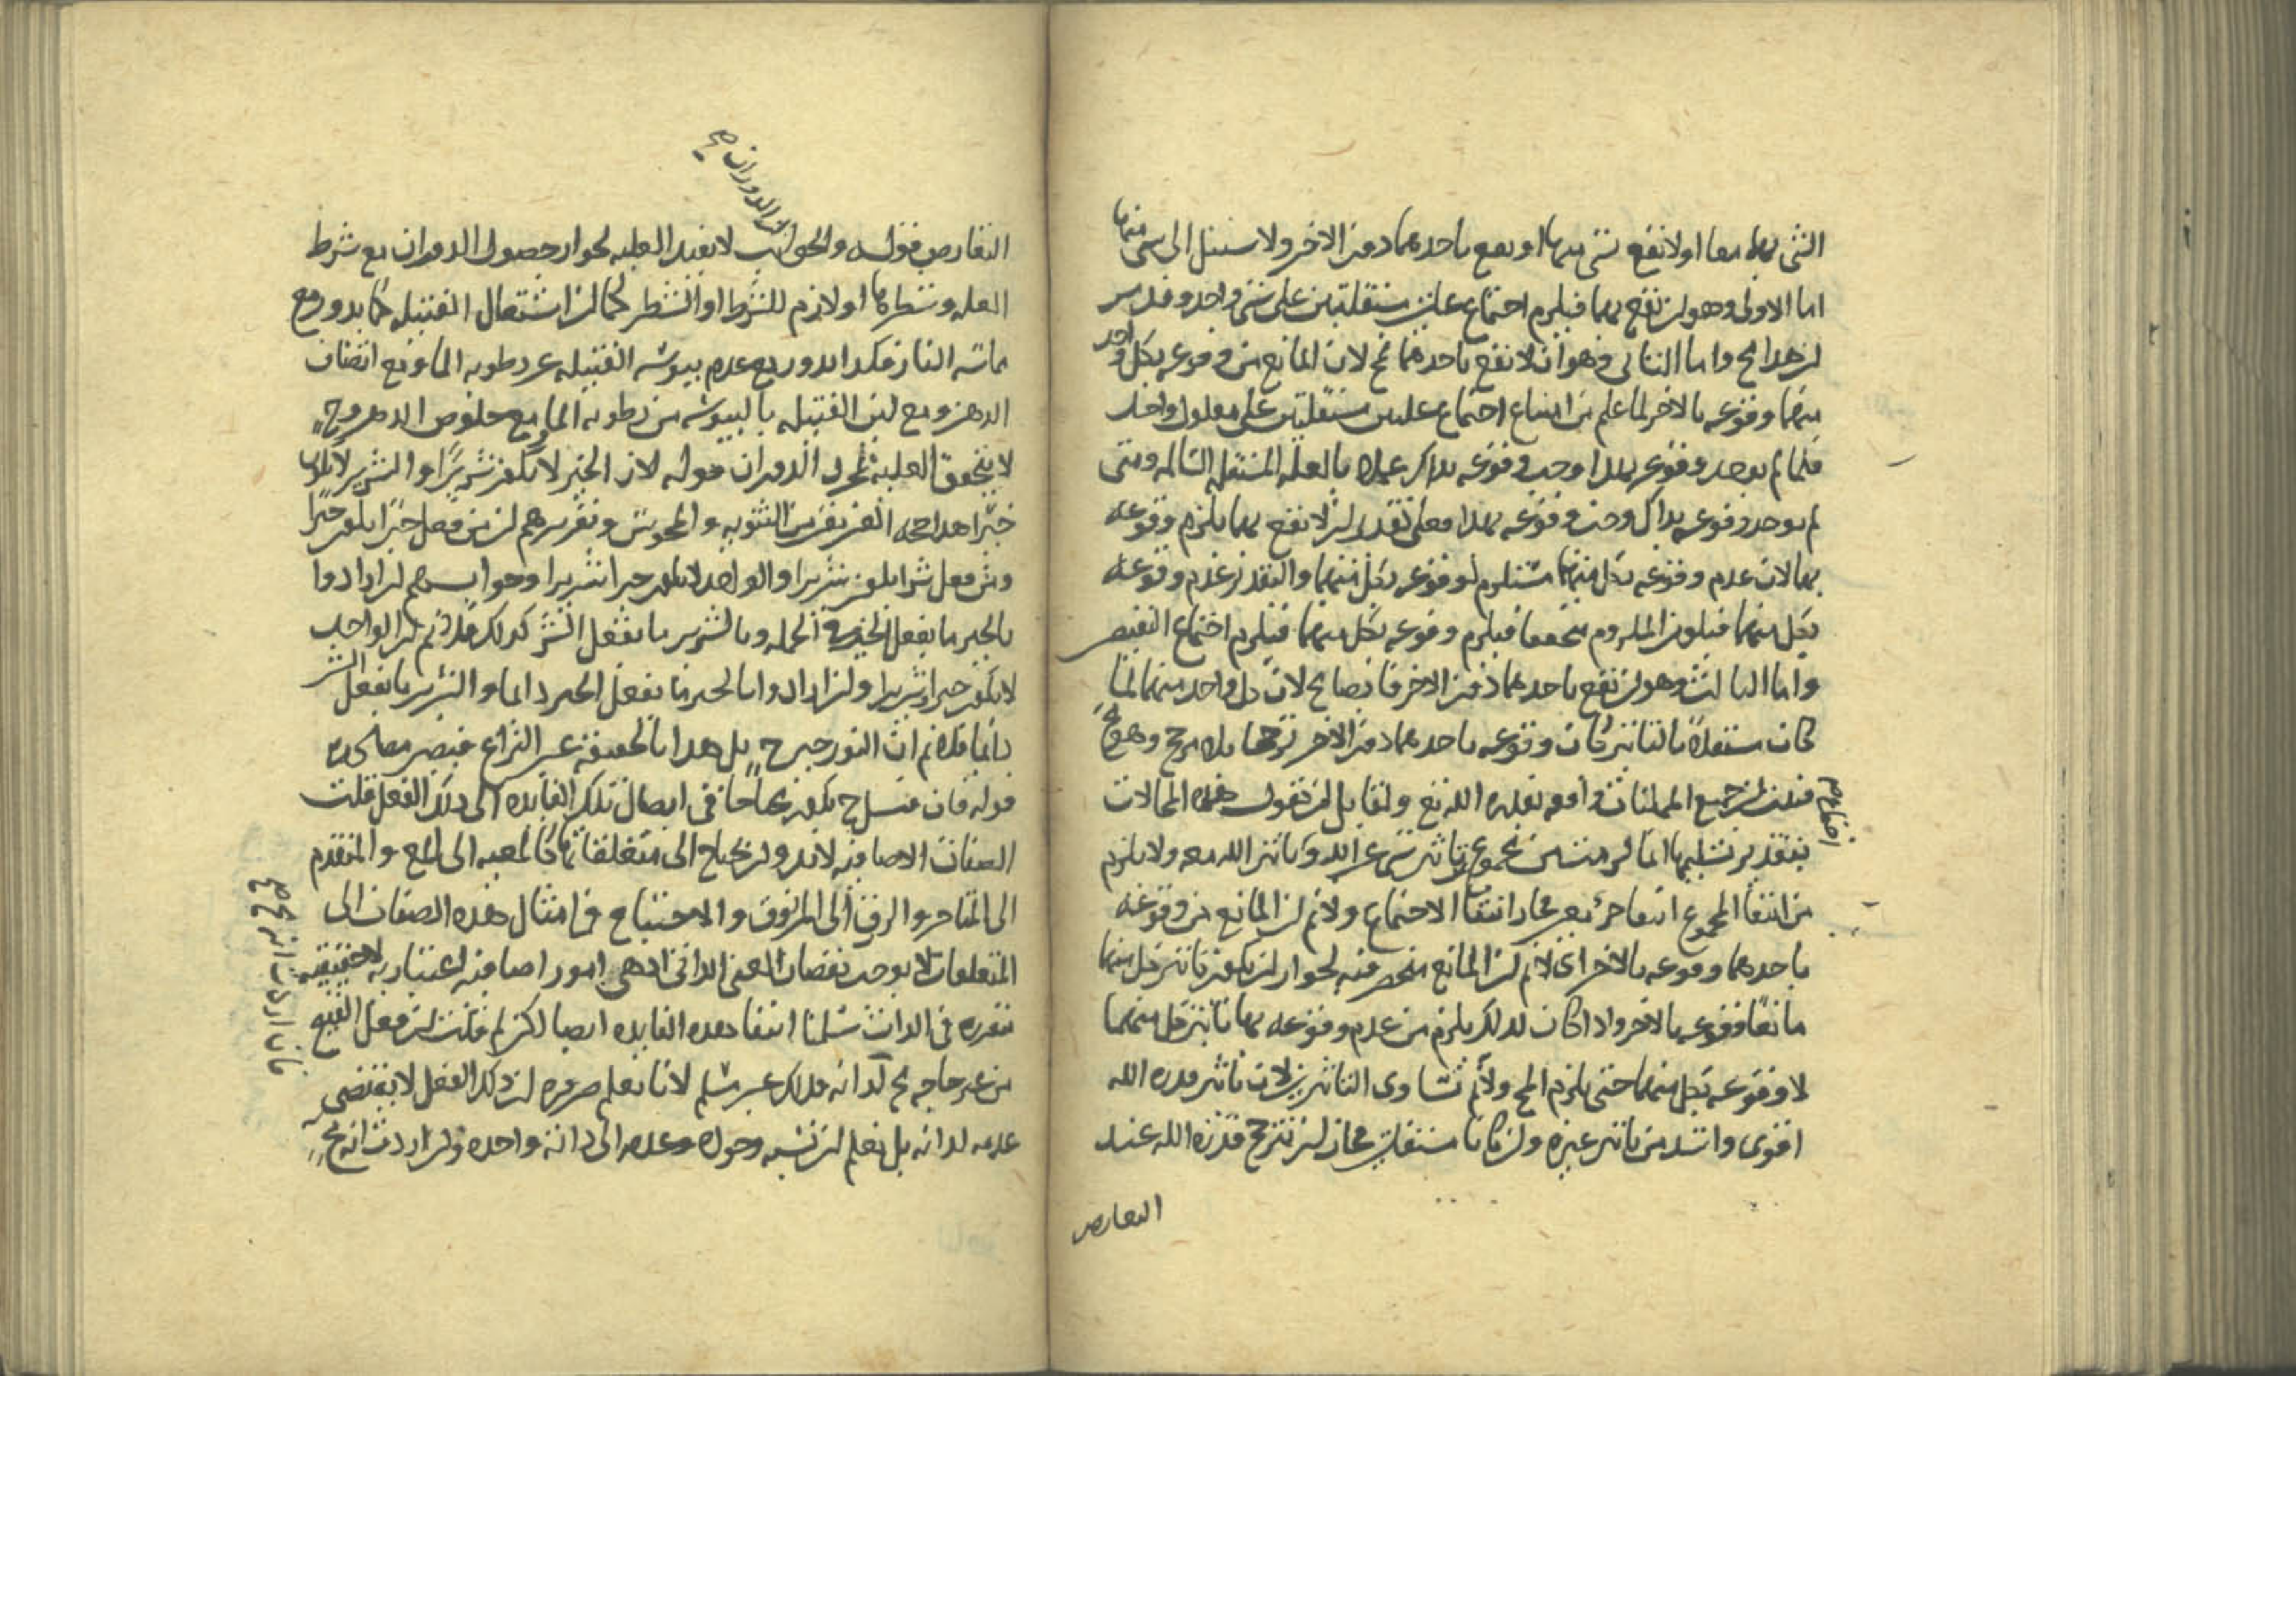 الشى بهما معا او لا تقع شى منهما او يقع باحدهما دون الاخر ولا سبيل الى شى منها
اما الاول وهو ان تقع بهما فيلزم اجتماع علتين مستقلتين على شى واحد وقد مر
ان هذا مح واما الثانى وهو ان لا تقع باحدهما مح لان المانع من وقوعه بكل واحد
منهما وقوعه بالاخر لما علم من امتناع اجتماع علتين مستقلتين على معلول واحد
فلما لم يوجد وقوعه بهذا وجب وقوعه بذاك عملا بالعلة المستقلة السالمة ومتى
لم يوجد وقوعه بذاك وجب وقوعه بهذا فعلى تقدير ان لا تقع بهما يلزم وقوعه
بهما لان عدم وقوعه بكل منهما مستلزم لوقوعه بكل منهما والتقدير عدم وقوعه
بكل منهما فيكون الملزوم متحققا فيلزم وقوعه بكل منهما فيلزم اجتماع النقيضين
واما الثالث وهو ان تقع باحدهما دون الاخر فايضا مح لان كل واحد منهما لما
كان مستقلا بالتاثير كان وقوعه باحدهما دون الاخر ترجيحا بلا مرجح وهو مح
فثبت ان جميع الممكنات واقعه بقدرة الله تع ولقايل ان تقول هذه المحالات
بتقدير تسليمها انما لزمت من مجموع تاثير شى غير الله وتاثير الله معه ولا يلزم
من انتفا المجموع انتفا جزء معين فجاز انتفا الاجتماع ولا نم ان المانع من وقوعه
باحدهما وقوعه بالاخر اى لا نم ان المانع منحصر فيه لجواز ان يكون تاثير كل منهما
مانعا وقوعه بالاخر واذا كان كذلك يلزم من عدم وقوعه بهما تاثير كل منهما
لا وقوعه بكل منهما حتى يلزم المح ولا نم تساوى التاثيرين لان تاثير قدرة الله
اقوى واشد من تاثير غيره وان كانا مستقلين فجاز ان تترجح قدرة الله عند
التعارض
التعارض قوله والجواب لا تفيد العلية لجواز حصول الدوران مع شرط
والدوران صح
العلة وشطرها او لازم للشرط او الشطر كما ان اشتعال الفتيلة كما يدور مع
مماسة النار فكذا يدور مع عدم يبوسة الفتيلة عن رطوبة الما ومع اتصاف
الدهن ومع لين الفتيلة باليبوسة من رطوبة الما ومع خلوص الدهن وح
لا يتحقق العلية بمجرد الدوران قوله لان الخير لا يكون شريرا والشرير لا يكون
خيرا هذا حجة الفريقين الثنوية والمجوس وتقريرهم ان من فعل خيرا يكون خيرا
ومن فعل شرا يكون شريرا والواحد لا يكون خيرا شريرا وجوابهم ان ارادوا
بالخير ما يفعل الخير فى الجملة وبالشرير ما يفعل الشر كذلك فلا نم ان الواحد
لا يكون خيرا وشريرا وان ارادوا بالخير ما يفعل الخير دايما والشرير ما يفعل الشر
دايما فلا نم ان النور خير ح بل هذا بالحقيقة عين النزاع فيصير مصادرة
قوله فان قيل ح يكون محتاجا فى ايصال تلك الفايده الى ذلك الفعل قلت
الصفات الاضافية لا بد وان يحتاج الى متعلقاتها كالمعية الى المع والمتقدم
الى المتاخر والرزق الى المرزوق والاحتياج فى امثال هذه الصفات الى
المتعلقات لا يوجب نقصان المعنى الذاتى اذ هى امور اضافية اعتبارية لا حقيقية
متقررة فى الذات سلمنا انتفا هذه الفايده ايضا لكن لم قلت ان فعل القبيح
من غير حاجة مح لذاته فذلك غير مسلم لانا نعلم ضرورة ان ذلك الفعل لا يقتضى
عدمه لذاته بل نعلم ان نسبة وجوده وعدمه الى ذاته واحدة وان اردت انه مح